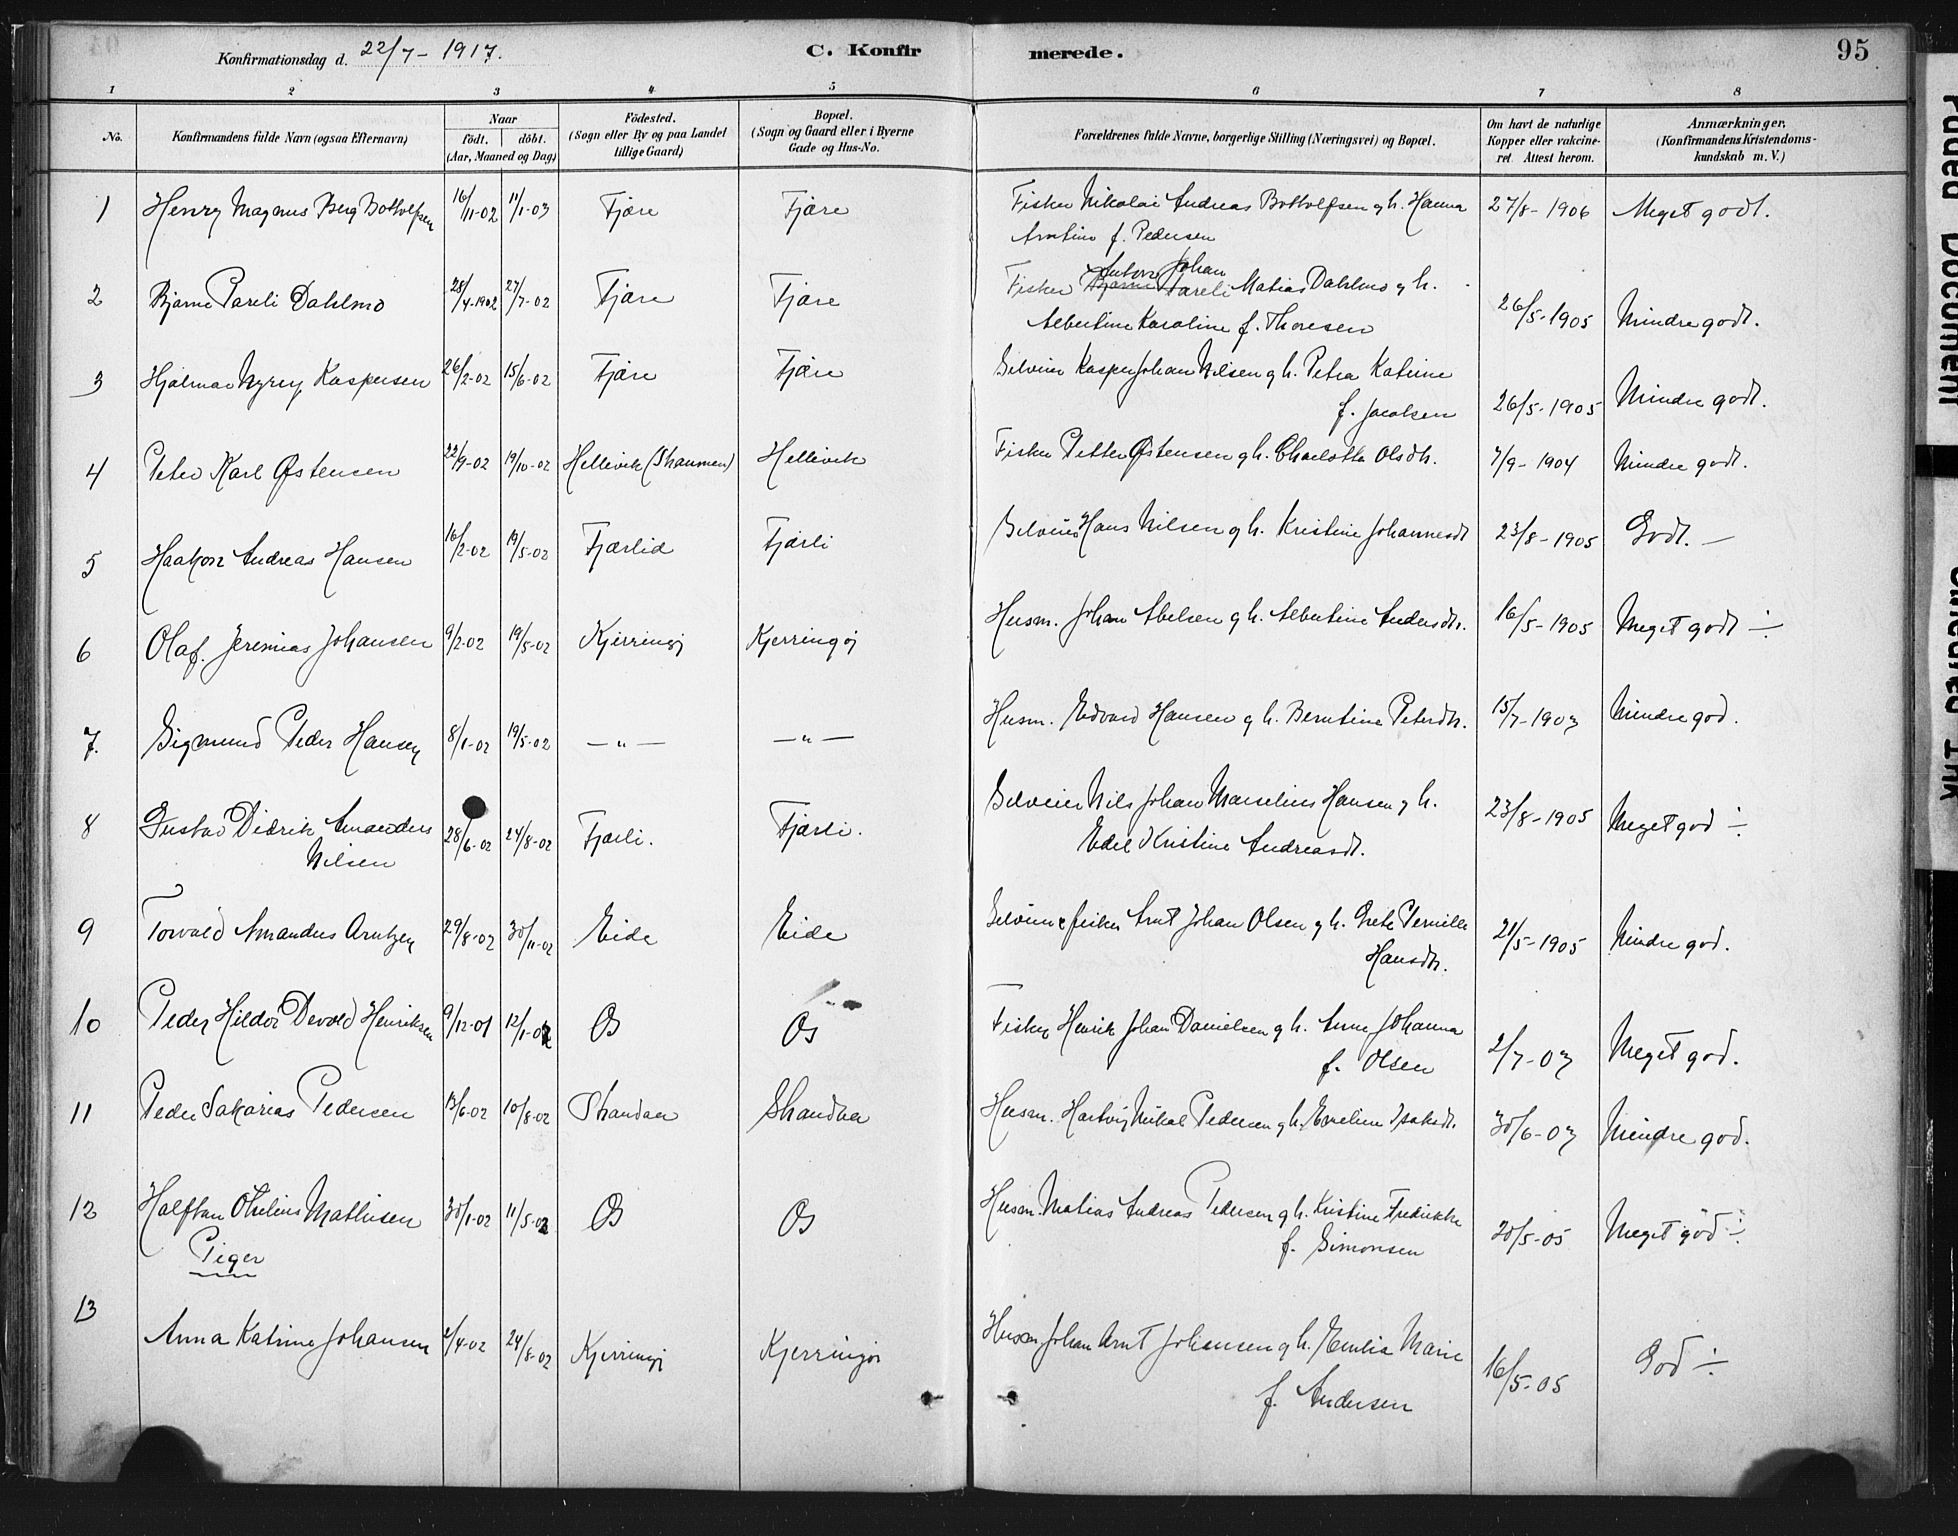 Konfirmationsdag d. 22/7 - 1917.
C. Konfir
merede.
95
1 2 3 4 5 6 7 8
No.
Konfirmandens fulde Navn (ogsaa Efternavn)
Naar
født. døbt.
(Aar, Maaned og Dag)
Fødested.
(Sogn eller By og paa Landet
tillige Gaard)
Bopæl.
(Sogn og Gaard eller i Byerne
Gade og Hus-No.
Forældrenes fulde Navne, borgerlige Stilling (Næringsvei) og Bopæl.
Om havt de naturlige
Kopper eller vakcine-
ret. Attest herom.
Anmærkninger,
(Konfirmandens Kristendoms-
kundskab m. V.)
1 Henry Magnus Berg Bottolfsen 16/11-02 11/1-03 Fjære Fjære Fisker Nikolai Andreas Bottolfsen g h. Hanna 27/8-1906 Meget godt.
Arntine f. Pedersen
Anton Johan
2 Bjarne Pareli Dahlmo 28/4-1902 27/7-02 Fjære Fjære Fisker Bjarne Pareli Matias Dahlmo g h. 26/5-1905 Mindre godt.
Albertine Karoline f. Thoresen
3 Hjalmar Nyrey Kaspersen 26/2-02 15/6-02 Fjære Fjære Selveier Kasper Johan Nilsen g h. Petra Katrine 26/5-1905 Mindre godt.
f. Jacobsen
4 Peter Karl Østensen 22/9-02 19/10-02 Hellevik (Skaumen) Hellevik Fisker Petter Østensen g h. Charlotta Olsdtr. 7/9-1904 Mindre godt.
5 Haakon Andreas Hansen 16/2-02 19/5-02 Fjærlid Fjærli Selveier Hans Nilsen g h. Kristine Johannesdt 23/8-1905 Godt. —
6 Olaf. Jeremias Johansen 9/2-02 19/5-02 Kjerringøj Kjerringøj Husm. Johan Abelsen g h. Albertine Andersdtr. 16/5-1905 Meget godt ÷
7. Sigmund Peder Hansen 8/1-02 19/5-02 — " — — " — Husm. Edvard Hansen g h. Berntine Petersdtr. 15/7-1903 Mindre god.
8 Gustav Didrik Amandus 28/6-02 24/8-02 Fjærli. Fjærli. Selveier Nils Johan Marselius Hansen g h. 23/8-1905 Meget god ÷
Nilsen Edel Kristine Andreasdt.
9 Torvald Amandus Arntzen 29/8-02 30/11-02 Eide Eide Selveier & fisker Arnt Johan Olsen g h. Grete Pernille 21/5-1905 Mindre god.
Hansdtr.
10 Peder Hildor Devold Henriksen 9/12-01 12/1-02 Os Os Fisker Henrik Johan Danielsen g h. Anne Johanna 2/7-03 Meget god.
f. Olsen
11 Peder Sakarias Pedersen 13/6-02 10/8-02 Strandaa Strandaa Husm. Hartvig Mikal Pedersen g h. Emeline Isaksdt. 30/6-03 Mindre god.
12 Halfdan Othelius Mathisen 30/1-02 11/5-02 Os Os Husm. Matias Andreas Pedersen g h. Kristine Fredrikke 20/5-05 Meget god ÷
f. Simonsen
Piger
13 Anna Katrine Johansen 2/4-02 24/8-02 Kjerringøj Kjerringøi Husm Johan Arnt Johansen g h. Emilia Marie 16/5-05 God ÷
f. Andersen